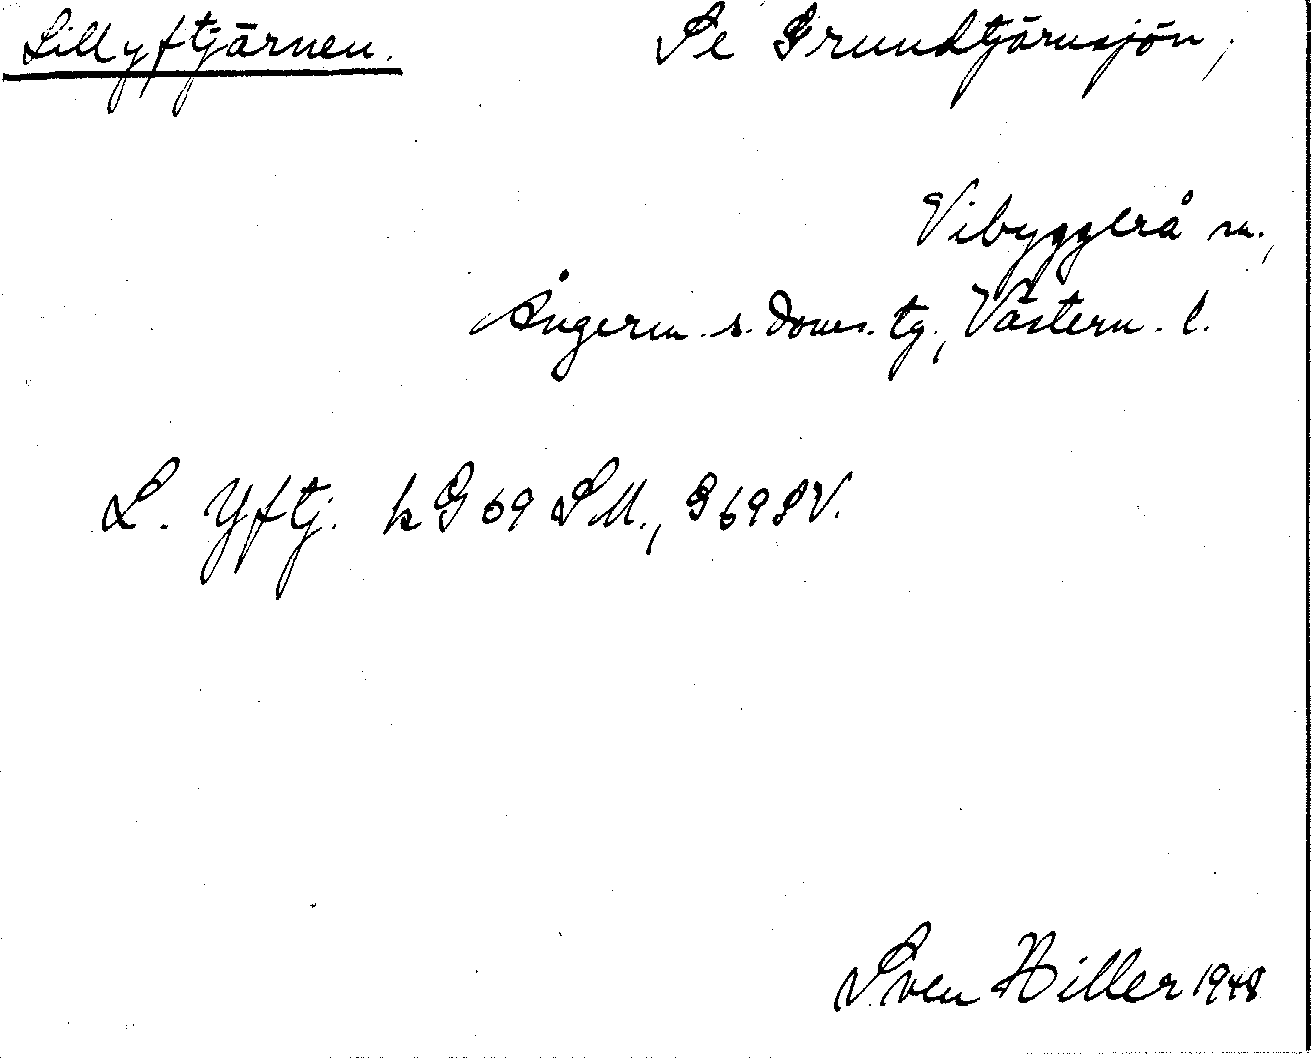 Lillyftjärnen. Se Grundtjärnsjön,
Vibyggerå sn.,
Ångerm. s. doms. tg., Västern. l.
L. Yftj. k G 69 SM., G 69 SV.
Sven Hiller 1948